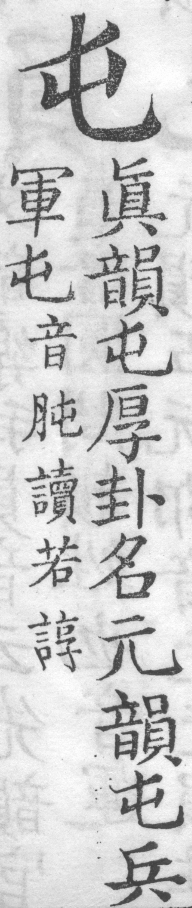 屯
眞韻屯厚卦名元韻屯兵
軍屯音肫讀若諄